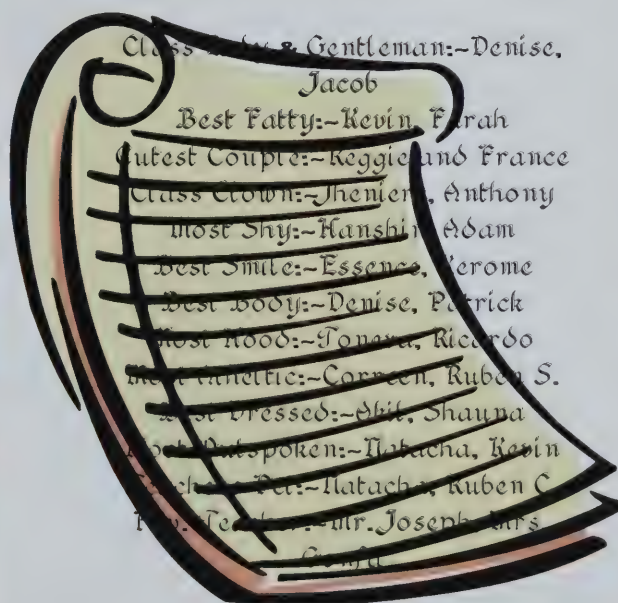 Class Lady & Gentleman:~Denise,
Jacob
Best Fatty:~Kevin, Farah
Cutest Couple:~Reggie and France
Class Clown:~ Anthony
Most Shy:~Hanshi Adam
Best Smile:~Essence, Jerome
Best Body:~Denise, Patrick
Most Hood:~ Ricardo
Most Athletic:~Correen, Ruben S.
Best Dressed:~ Shauna
Most Outspoken:~Natacha, Kevin
Teacher's Pet:~Natacha, Ruben C
Fav. Teacher:~Mr. Joseph, Mrs